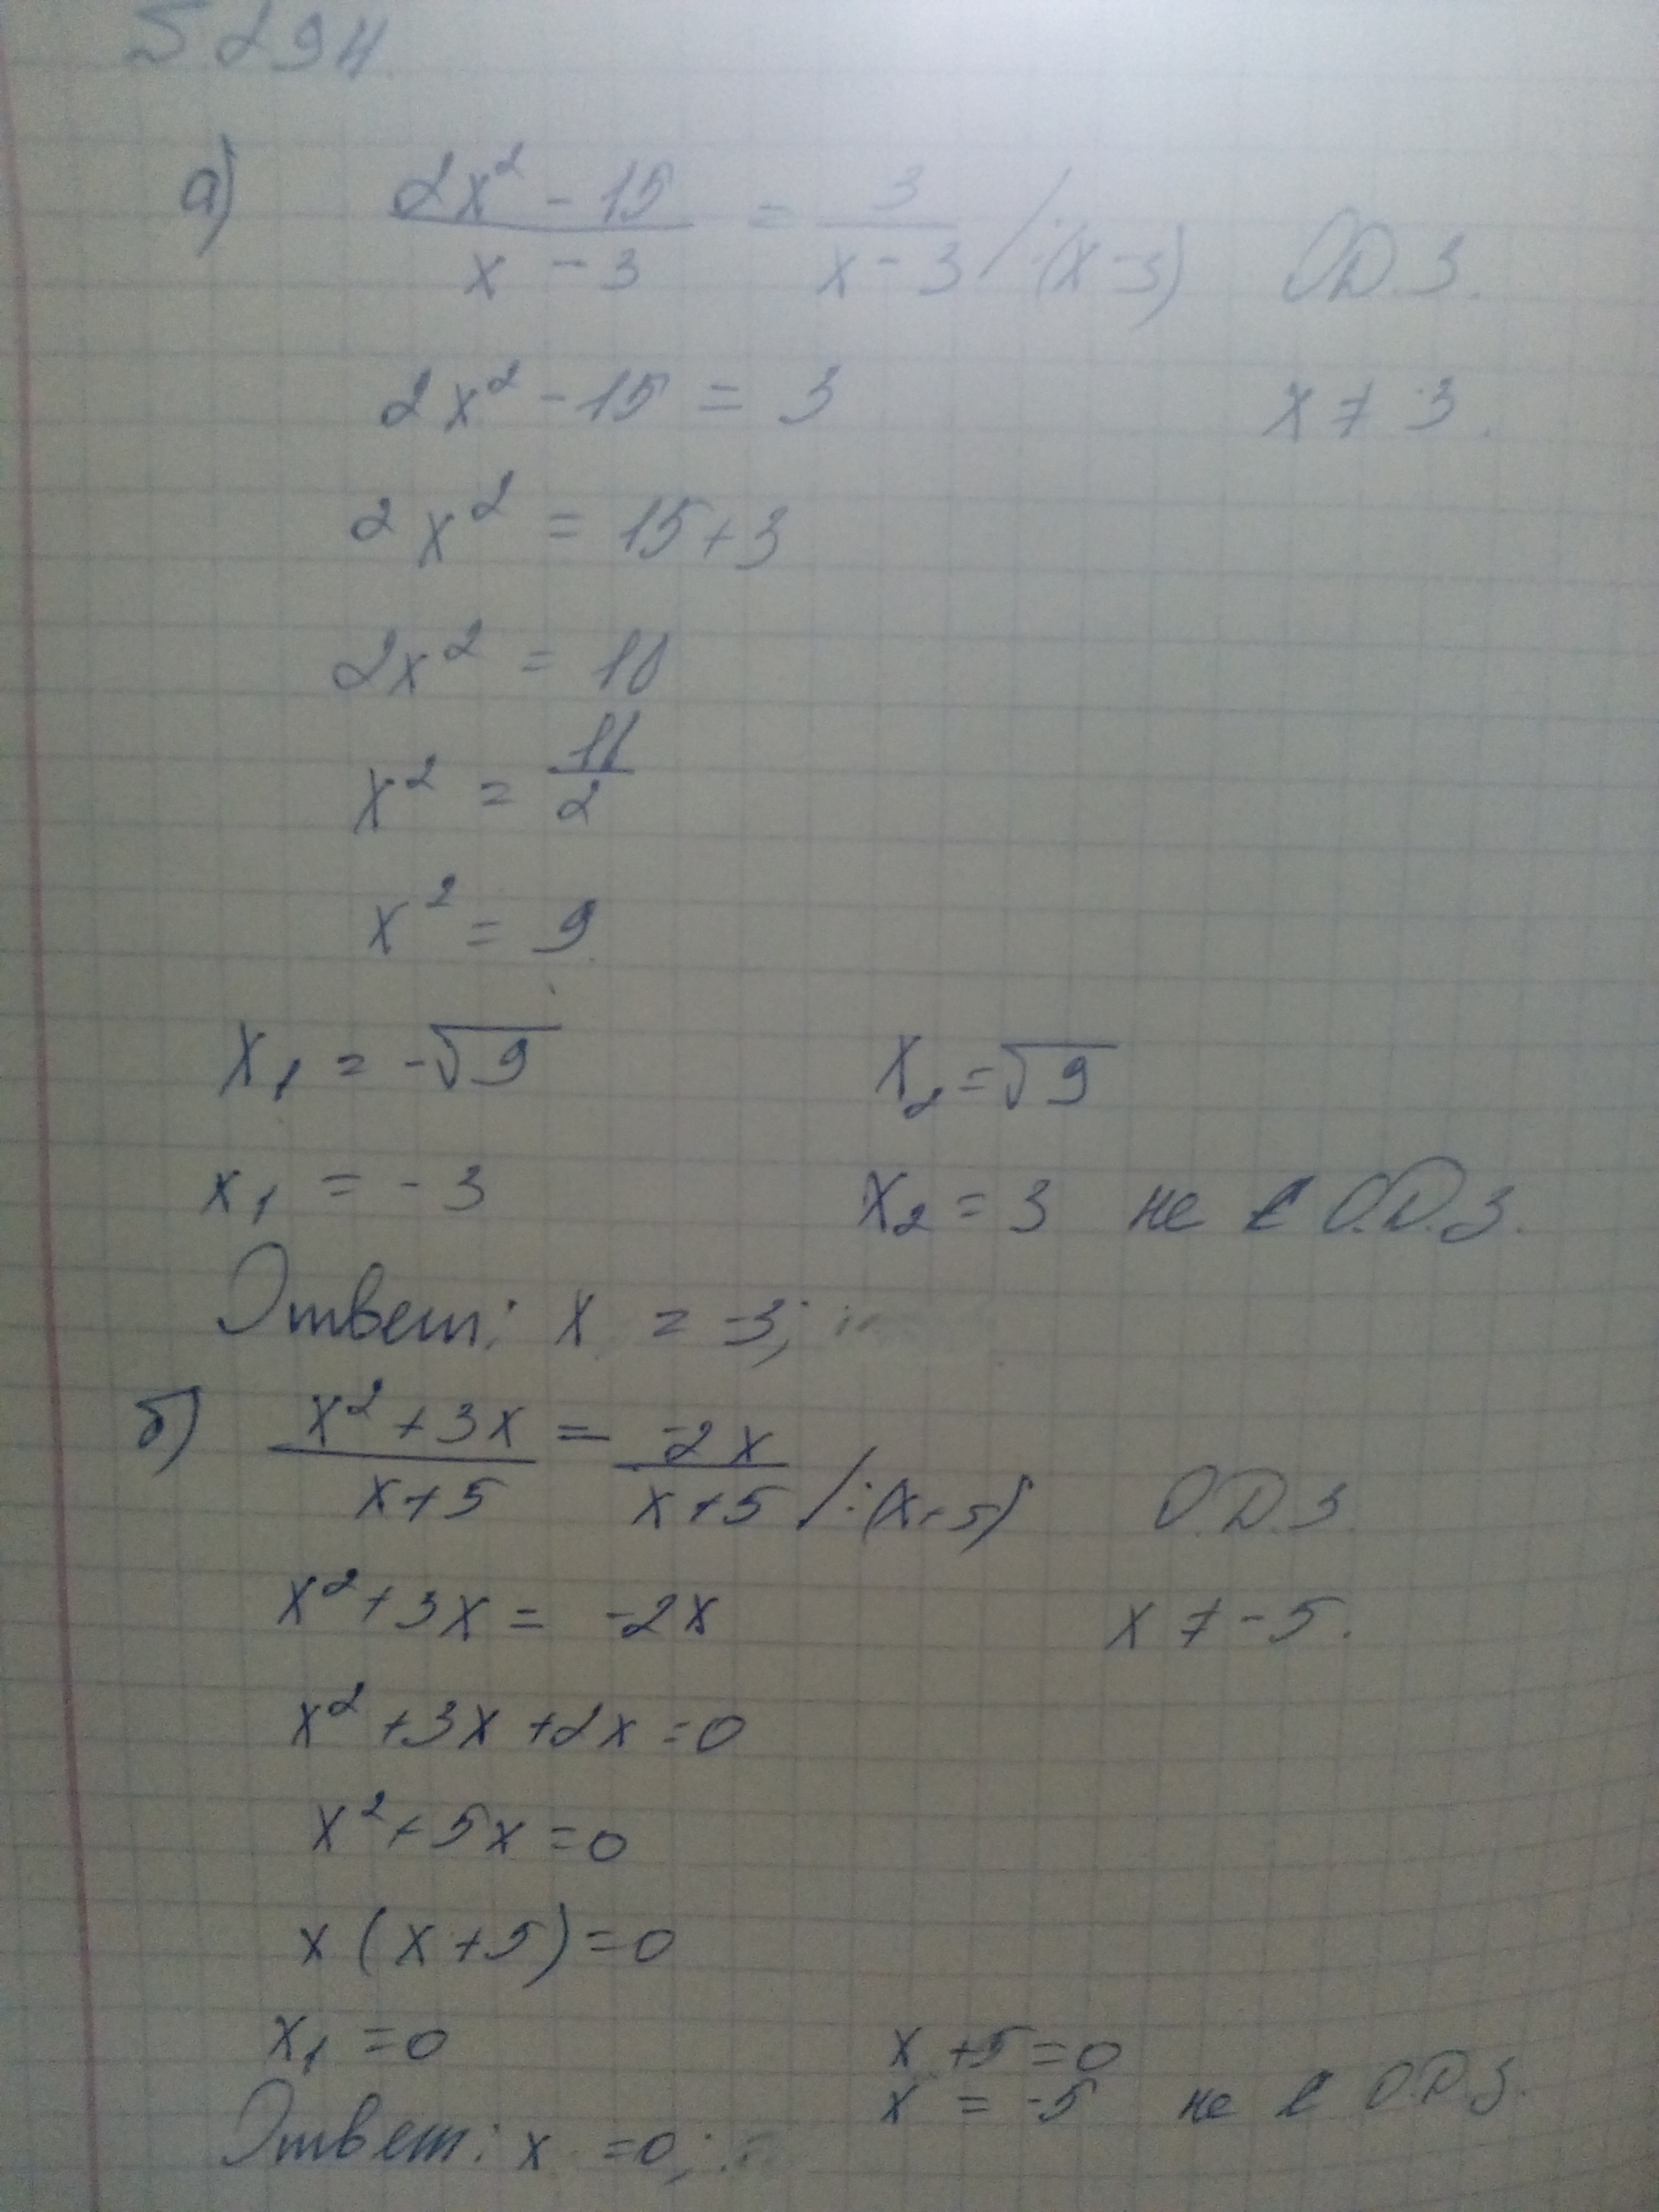 5294
а) (2x² - 15)/(x - 3) = 3/(x - 3) / :(x-3) О.D.З.
2x² - 15 = 3 x ≠ 3.
2x² = 15+3
2x² = 18
x² = 18/2
x² = 9
x₁ = -√9 x₂ = √9
x₁ = -3 x₂ = 3 не ∈ О.D.З.
Ответ: x = -3;
б) (x² + 3x)/(x+5) = -2x/(x+5) / :(x+5) О.D.З.
x² + 3x = -2x x ≠ -5.
x² + 3x + 2x = 0
x² + 5x = 0
x (x+5) = 0
x₁ = 0 x + 5 = 0
x = -5 не ∈ О.D.З.
Ответ: x = 0;